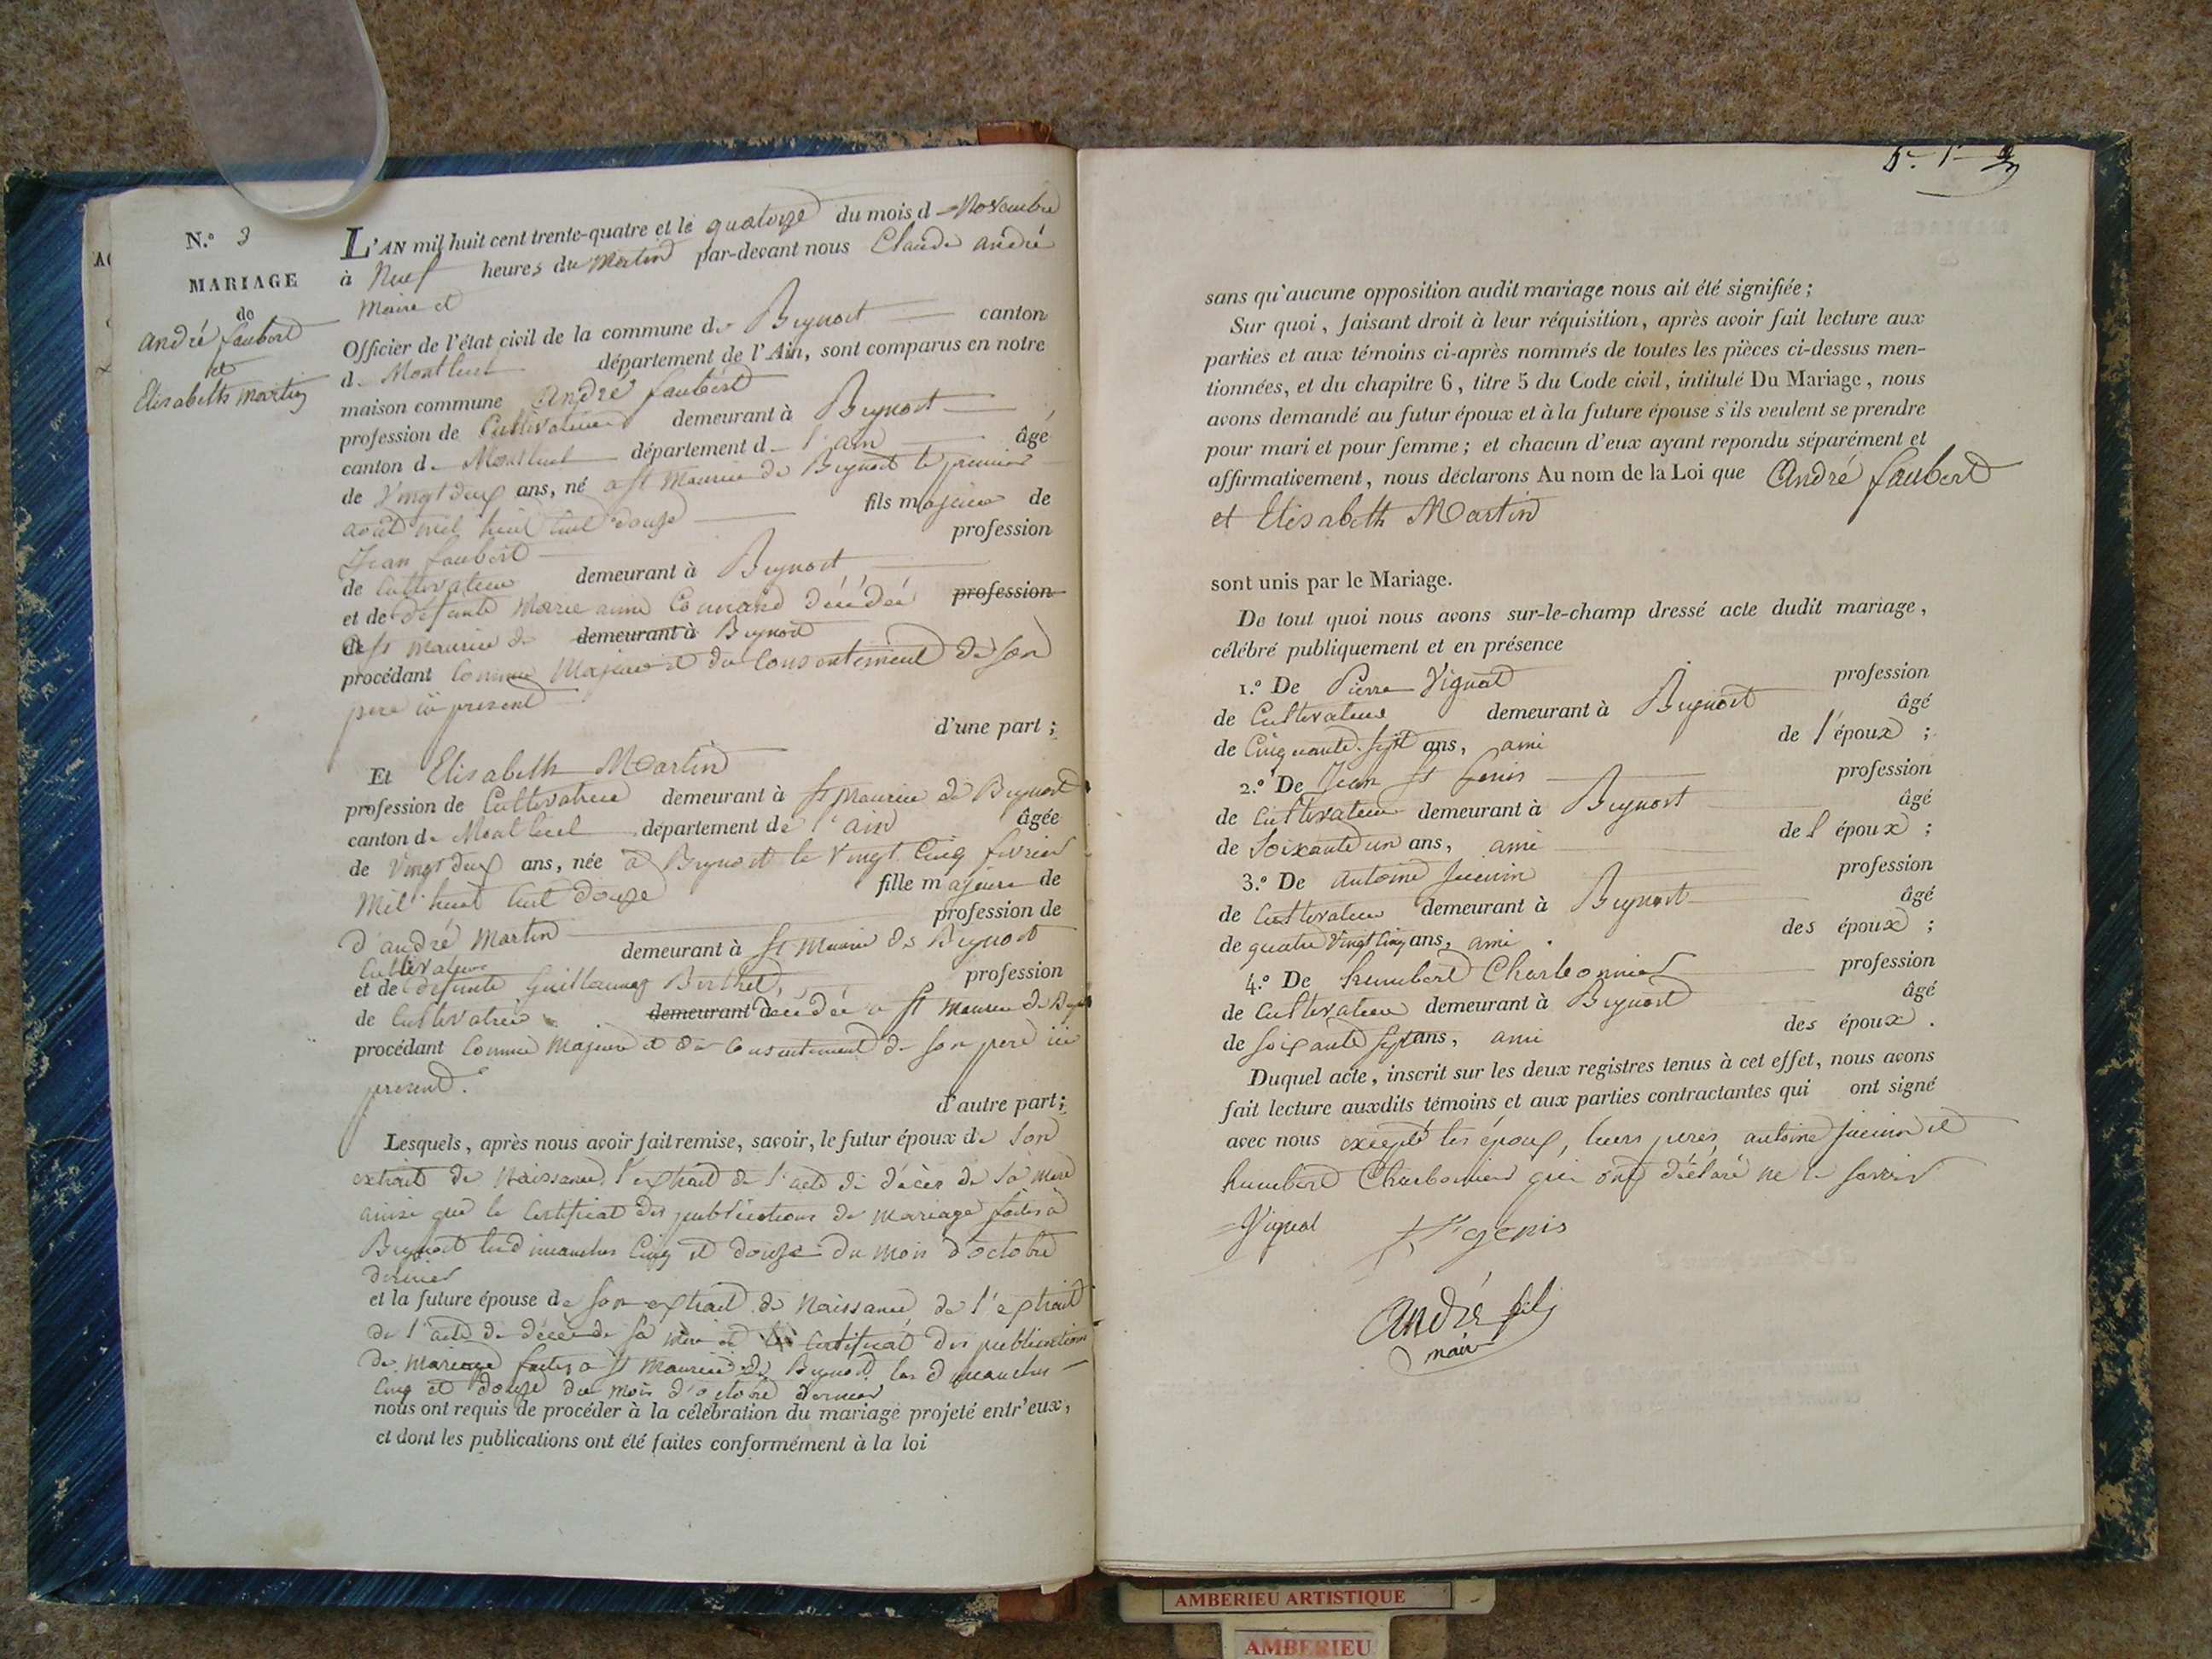 N.º 3
MARIAGE
de
André faubert
et
Elisabeth Martin
L'AN mil huit cent trente-quatre et le quatorze du mois d Novembre
à Neuf heures du Matin par-devant nous Claude André
Maire et
Officier de l'état civil de la commune de Beynost canton
de Montluel département de l'Ain, sont comparus en notre
maison commune André faubert
profession de Cultivateur demeurant à Beynost
canton de Montluel département de l'ain âgé
de Vingt deux ans, né a St Maurice de Beynost le premier
août mil huit cent douze fils majeur de
Jean faubert profession
de Cultivateur demeurant à Beynost
et de défunte Marie anne décédée profession
de St Maurice de demeurant à Beynost
procédant Comme Majeur et du Consentement de son
pere ici present
d'une part ;
Et Elisabeth Martin
profession de Cultivatrice demeurant à St Maurice de Beynost
canton de Montluel département de l'ain âgée
de Vingt deux ans, née à Beynost le Vingt Cinq fevrier
Mil huit Cent douze fille majeure de
d'andré Martin profession de
Cultivateur demeurant à St Maurice de Beynost
et de défunte Berthet, profession
de Cultivatrice demeurant décédée a St Maurice de
procédant Comme Majeure et du Consentement de son pere ici
present.
d'autre part ;
Lesquels, après nous avoir fait remise, savoir, le futur époux de son
extrait de Naissance, l'extrait de l'acte de décès de sa mere
ainsi que le Certificat des publications de Mariage faites à
Beynost les dimanches Cinq et douze du mois d'octobre
dernier
et la future épouse de son extrait de Naissance de l'extrait
de l'acte de décès de sa mere et Certificat des publications
de Mariage faites a St Maurice de Beynost les dimanches
Cinq et douze du mois d'octobre dernier
nous ont requis de procéder à la célébration du mariage projeté entr'eux,
et dont les publications ont été faites conformément à la loi
sans qu'aucune opposition audit mariage nous ait été signifiée ;
Sur quoi, faisant droit à leur réquisition, après avoir fait lecture aux
parties et aux témoins ci-après nommés de toutes les pièces ci-dessus men-
tionnées, et du chapitre 6, titre 5 du Code civil, intitulé Du Mariage, nous
avons demandé au futur époux et à la future épouse s'ils veulent se prendre
pour mari et pour femme ; et chacun d'eux ayant repondu séparément et
affirmativement, nous déclarons Au nom de la Loi que André faubert
et Elisabeth Martin
sont unis par le Mariage.
De tout quoi nous avons sur-le-champ dressé acte dudit mariage,
célébré publiquement et en présence
1.º De Pierre Vignat profession
de Cultivateur demeurant à Beynost âgé
de Cinquante-Sept ans, ami de l'époux ;
2.º De Jean St Genis profession
de Cultivateur demeurant à Beynost âgé
de Soixante un ans, ami de l époux ;
3.º De antoine profession
de Cultivateur demeurant à Beynost âgé
de quatre Vingt Cinq ans, ami des époux ;
4.º De humbert Charbonnier profession
de Cultivateur demeurant à Beynost âgé
de soixante sept ans, ami des époux .
Duquel acte, inscrit sur les deux registres tenus à cet effet, nous avons
fait lecture auxdits témoins et aux parties contractantes qui ont signé
avec nous excepté les époux, leurs peres, antoine et
humbert Charbonnier qui ont déclaré ne le savoir
Vignat St genis
André fils
maire
AMBERIEU ARTISTIQUE
AMBERIEU